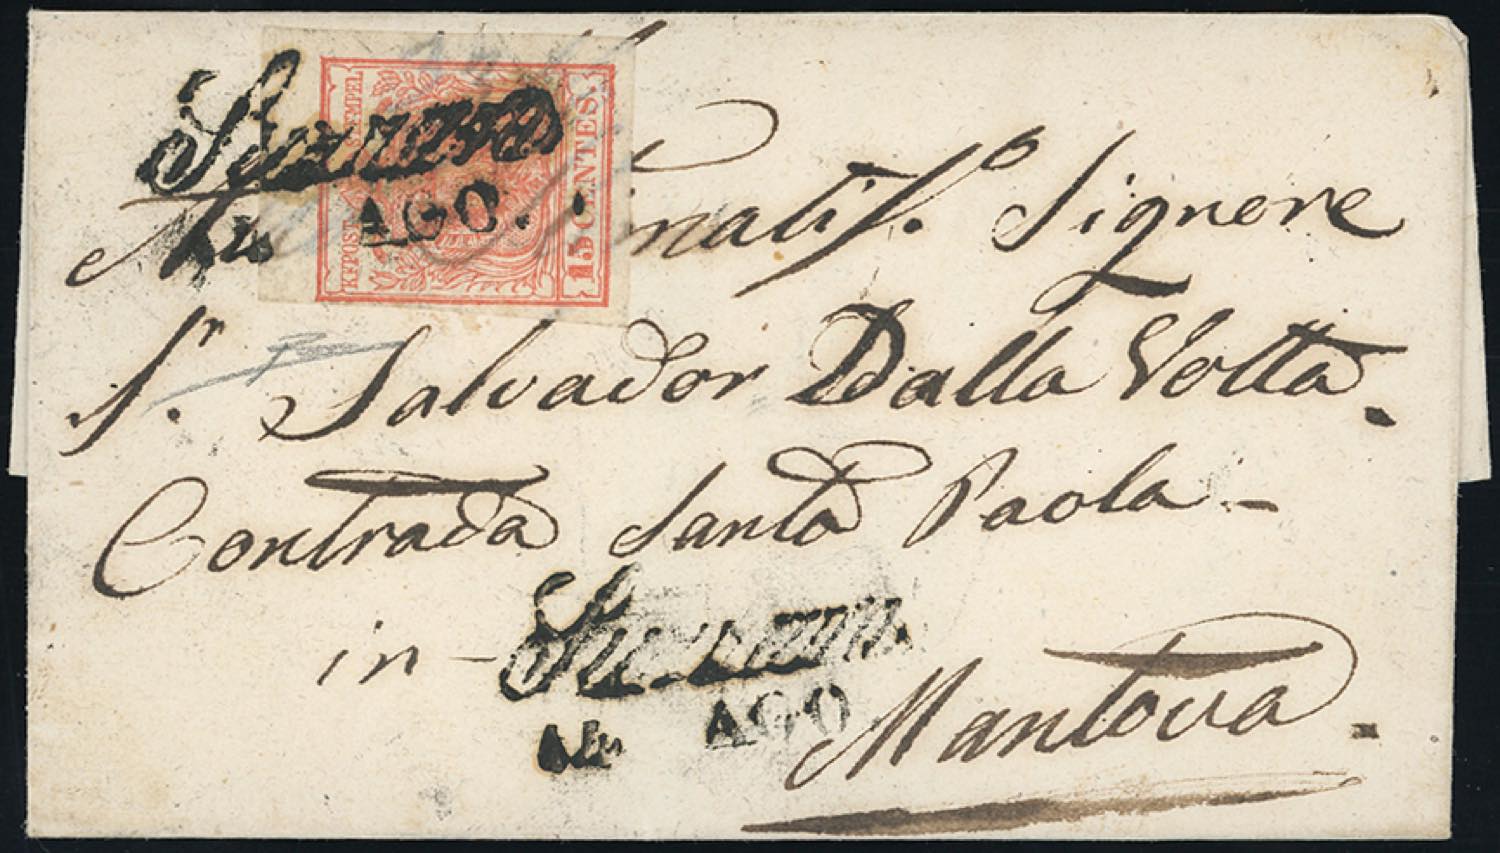 Suzzara
AGO.
KKPOST STEMPEL
15 CENTES.
Signore
Sr. Salvador Dalla Volta.
Contrada Santa Paola -
in - Mantova.
Suzzara
AGO